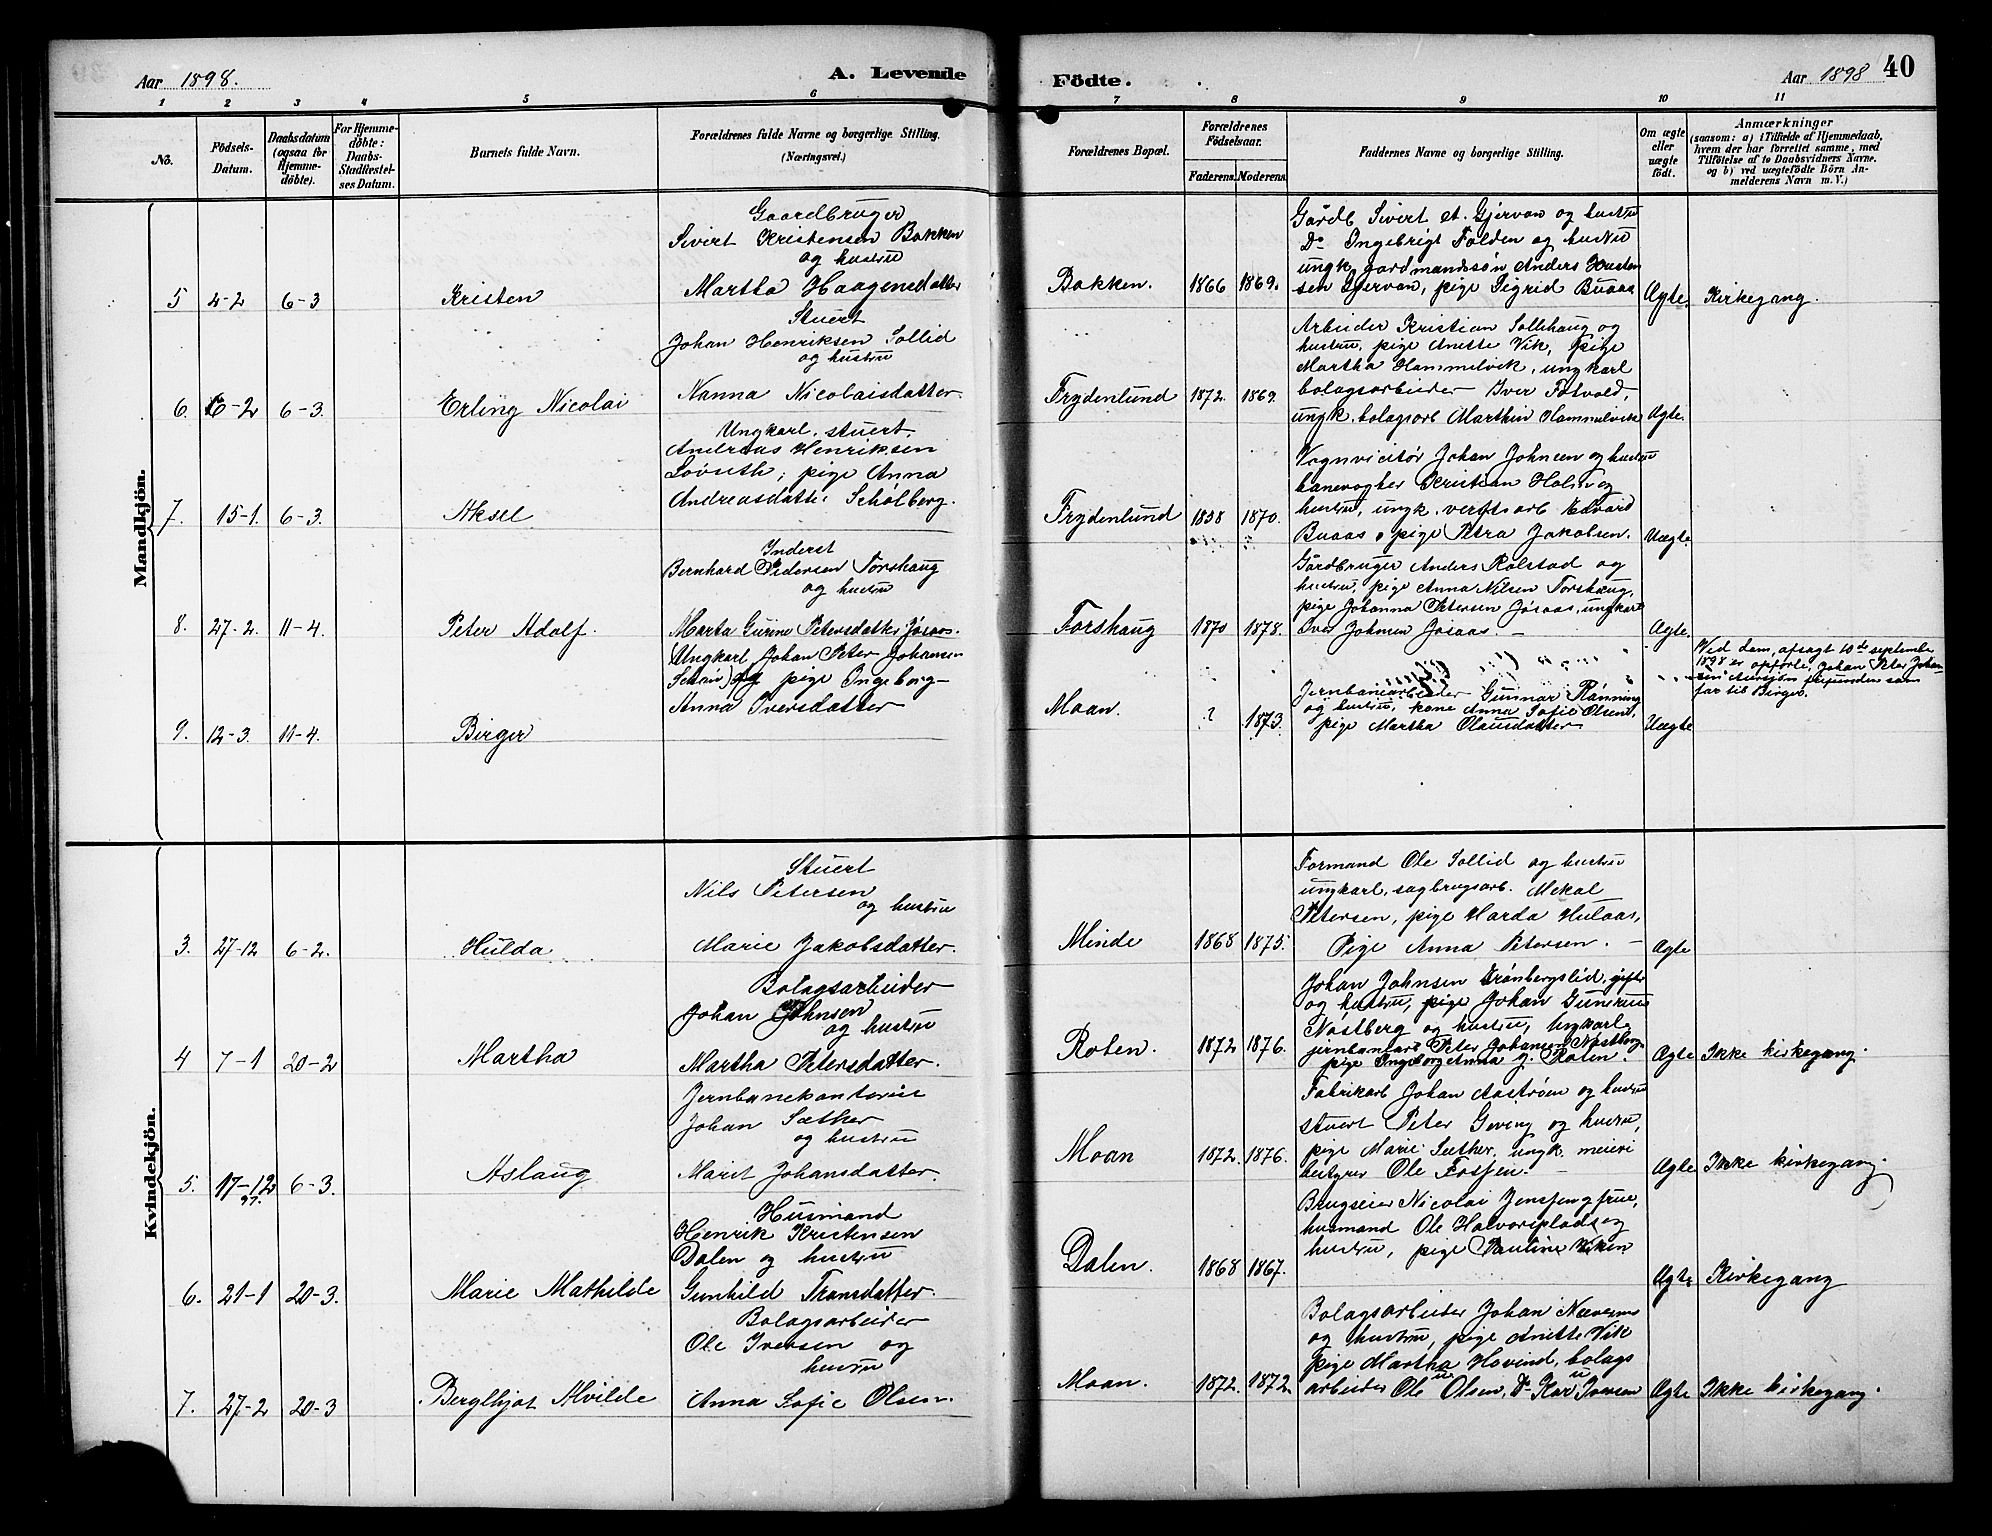 Aar 1898.
A. Levende
Födte.
Aar 1898
40
1 2 3 4 5 6 7 8 9 10 11
No.
Födsels-Datum.
Daabsdatum (ogsaa for Hjemmedöbte).
For Hjemmedöbte: Daabs-Stadfæstelses Datum.
Barnets fulde Navn.
Forældrenes fulde Navne og borgerlige Stilling.
(Næringsvei.)
Forældrenes Bopæl.
Forældrenes Födselsaar.
Faderens. Moderens.
Faddernes Navne og borgerlige Stilling.
Om ægte eller uægte födt.
Anmærkninger
(saasom: a) i Tilfælde af Hjemmedaab, hvem der har forrettet samme, med Tilföielse af to Daabsvidners Navne. og b) ved uægtefödte Börn Anmelderens Navn m. V.)
Mandkjön.
Gaardbruger
Sivert Kristensen Bakken
og hustru
5 4-2 6-3 Kristen Martha Haagensdatter
Bakken. 1866 1869.
Gårdb Sivert et. Gjervan og hustru
Do Ingebrigt Folden og hustru
ungk. gardmandssøn Anders
Gjervan, pige Sigrid Buaas
Ægte. Kirkegang.
Stuert
Johan Henriksen Sollid
og hustru
6. 6-2 6-3. Erling Nicolai Nanna Nicolaisdatter.
Frydenlund 1872. 1869.
Arbeider Kristian Sollihaug og
hustru, pige Anette Vik, pige
Martha Hammelvik, ungkarl
bolagsarbeider Iver
ungk. bolagsarb Marthin Hammelvik
Ægte.
Ungkarl, stuert,
Andreas Henriksen
pige Anna
Andreasdatter Schølberg.
7. 15-1. 6-3. Aksel
Frydenlund 1858 1870.
Vognvicitør Johan Johnsen og hustru
banevogter Kristian
hustru, ungk. Edvard
Buaas, pige Petra Jakobsen.
Uægte.
Inderst
Bernhard Pedersen Forshaug
og hustru
8. 27-2. 11-4. Peter Adolf. Marta Gurine Petersdatter Jøsaas.
Forshaug 1870 1878.
Gårdbruger Anders Rolstad og
hustru, pige Anna Nilsen Forshaug,
pige Johanna Petersen Jøsaas, ungkarl
Iver Johnsen Jøsaas. —
Ægte.
Ungkarl Johan Peter Johansen
pige Ingeborg
Anna Iversdatter
9. 12-3. 11-4. Birger
Moan. ? 1873.
Jernbanearbeider Gunnar Rønning
og hustru, kone Anna Sofie Olsen,
pige Martha Olausdatter
Uægte
Ved dom, afsagt 10de september
1898 er opførte, Johan Peter Johan-
sen
far til Birger.
Kvindekjön.
Stuert
Nils Petersen
og hustru
3. 27-12 6-2. Hulda Marie Jakobsdatter.
Minde 1868 1875.
Formand Ole Sollid og hustru
ungkarl, sagbrugsarb. Mekal
Petersen, pige Harda
Pige Anna Petersen. —
Ægte
Bolagsarbeider
Johan Johnsen
og hustru
4 7-1 20-2 Martha Martha Petersdatter.
Roten. 1872 1876.
Johan Johnsen
og hustru, pige Johan
Nastberg og hustru, ungkarl
jernbanearb Peter Johansen Nastberg,
pige Ingeborg Anna J. Roten.
Ægte Ikke kirkegang.
Jernbanekontorist
Johan Sæther
og hustru
5. 17-12 97. 6-3. Aslaug Marit Johansdatter.
Moan 1872. 1876.
Fabrikarb Johan Aastrøm og hustru
stuert Peter Geving og hustru,
pige Marie Sæther, ungk. meieri
bestyrer Ole
Ægte Ikke kirkegang.
Husmand
Henrik Kristensen
Dalen og hustru
6. 21-1 20-3. Marie Mathilde Gunhild
Dalen. 1868 1867.
Brugseier Nicolai Jenssen og frue,
husmand Ole Halvorsplads og
hustru, pige Pauline Viken
Ægte Kirkegang
Bolagsarbeider
Ole Iversen og
hustru
7. 27-2 20-3 Bergljot Alvilde Anna Sofie Olsen.
Moan. 1872. 1872.
Bolagsarbeider Johan
og hustru, pige Anette Vik
pige Martha Hovind, bolags
arbeider Ole Olsen, Do Kar Iversen
Ægte Ikke kirkegang.